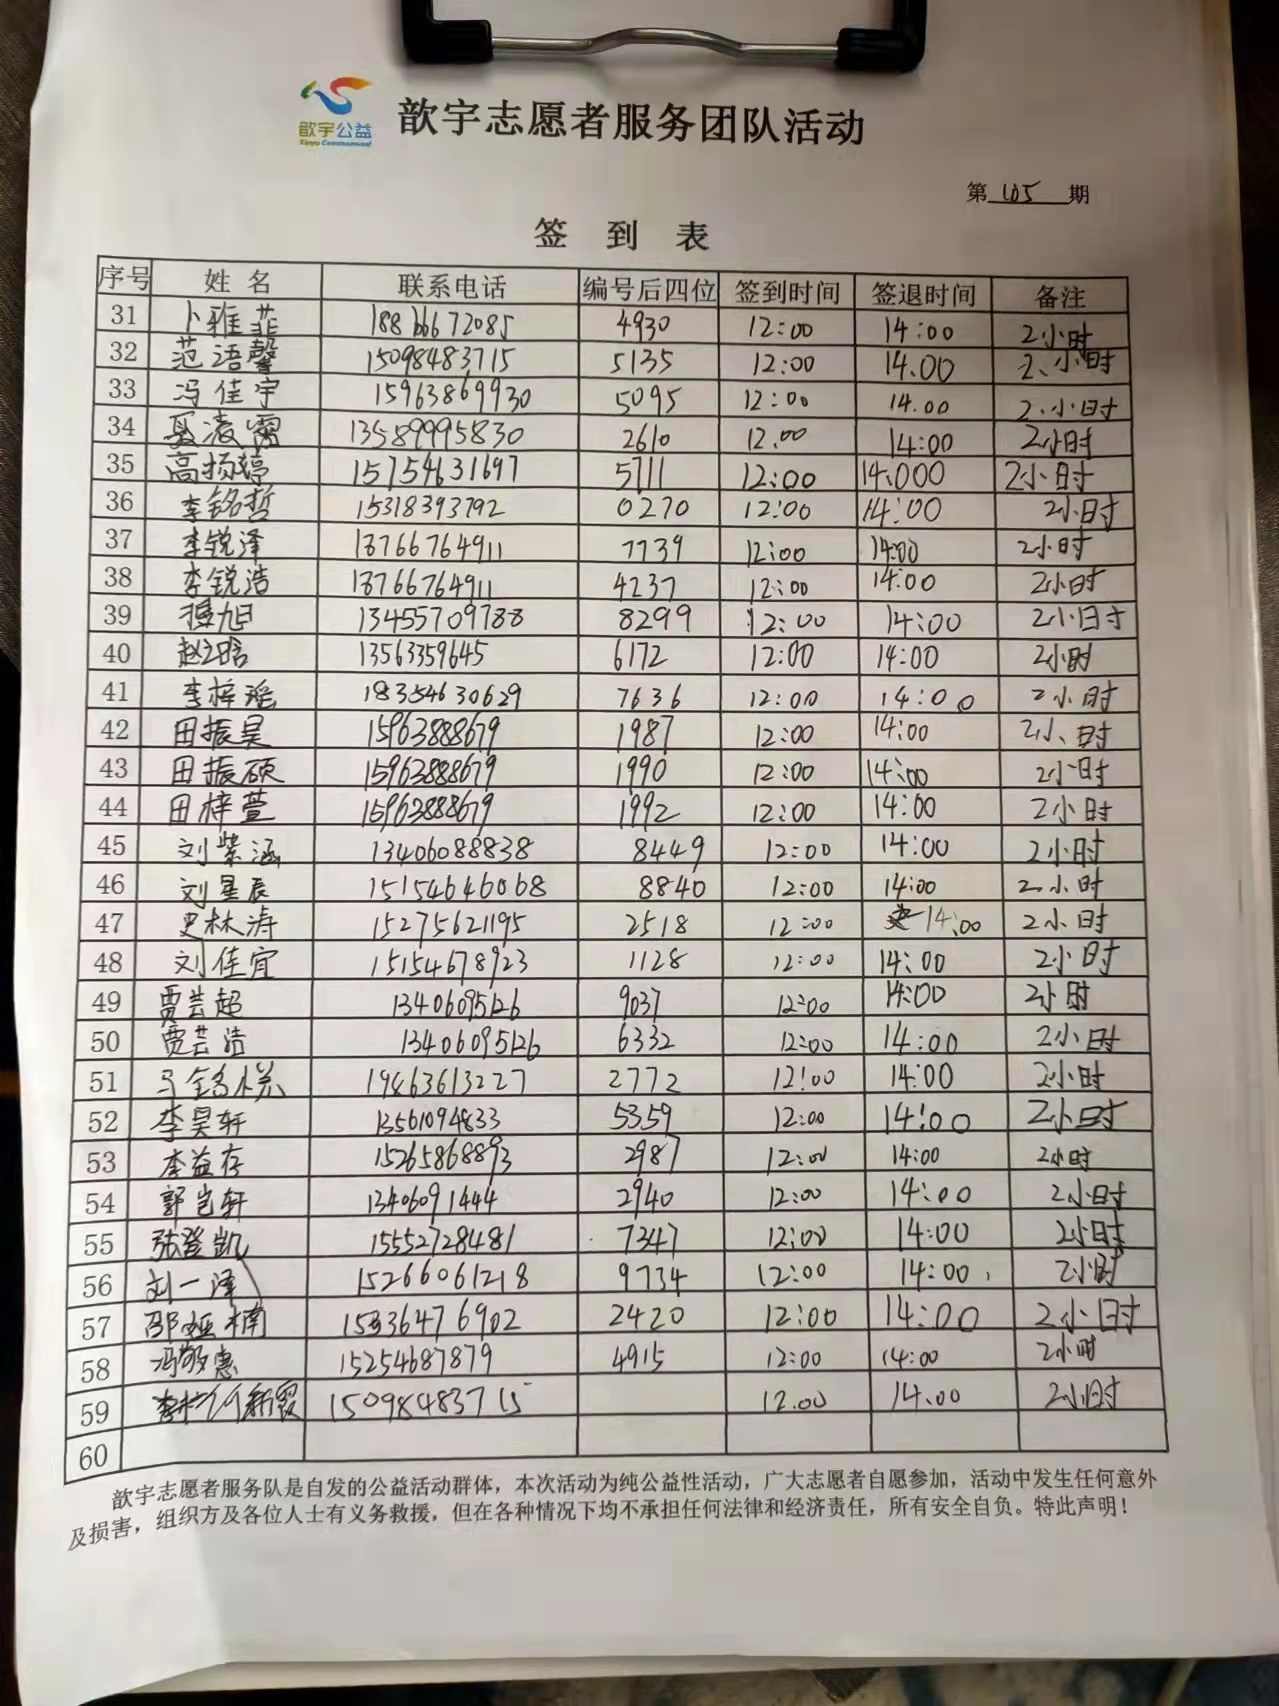 歆宇公益
Xinyu Commonweal
歆宇志愿者服务团队活动
第 105 期
签 到 表
序号 姓名 联系电话 编号后四位 签到时间 签退时间 备注
31 卜雅菲 18866672085 4930 12:00 14:00 2小时
32 范语馨 15098483715 5135 12:00 14.00 2、小时
33 冯佳宇 15963869930 5095 12:00 14.00 2.小时
34 聂凌霄 13589995830 2610 12.00 14:00 2小时
35 高扬婷 15754631697 5711 12:00 14:000 2小时
36 李铭哲 15318393792 0270 12:00 14:00 2小时
37 李锐泽 13766764911 7739 12:00 14:00 2小时
38 李锐浩 13766764911 4237 12:00 14:00 2小时
39 旭 13455709788 8299 12:00 14:00 2小时
40 赵晗 13563359645 6172 12:00 14:00 2小时
41 李梓瑶 18354630629 7636 12:00 14:00 2小时
42 田振昊 15963888679 1987 12:00 14:00 2小时
43 田振硕 15963888679 1990 12:00 14:00 2小时
44 田梓萱 15963888679 1992 12:00 14:00 2小时
45 刘紫涵 13406088838 8449 12:00 14:00 2小时
46 刘星辰 15154646068 8840 12:00 14:00 2小时
47 史林涛 15275621195 2518 12:00 14:00 2小时
48 刘佳宜 15154678923 1128 12:00 14:00 2小时
49 贾芸超 13406095126 9037 12:00 14:00 2小时
50 贾芸浩 13406095126 6332 12:00 14:00 2小时
51 马 19463613227 2772 12:00 14:00 2小时
52 李昊轩 13561094833 5359 12:00 14:00 2小时
53 李益存 15265868893 2987 12:00 14:00 2小时
54 郭轩 13406091444 2940 12:00 14:00 2小时
55 张登凯 15552728481 7347 12:00 14:00 2小时
56 刘一泽 15266061218 9734 12:00 14:00 2小时
57 邵娅楠 2420 12:00 14:00 2小时
58 冯敬惠 15254687879 4915 12:00 14:00 2小时
59 15098483715 12.00 14.00 2小时
60
歆宇志愿者服务队是自发的公益活动群体，本次活动为纯公益性活动，广大志愿者自愿参加，活动中发生任何意外
及损害，组织方及各位人士有义务救援，但在各种情况下均不承担任何法律和经济责任，所有安全自负。特此声明！